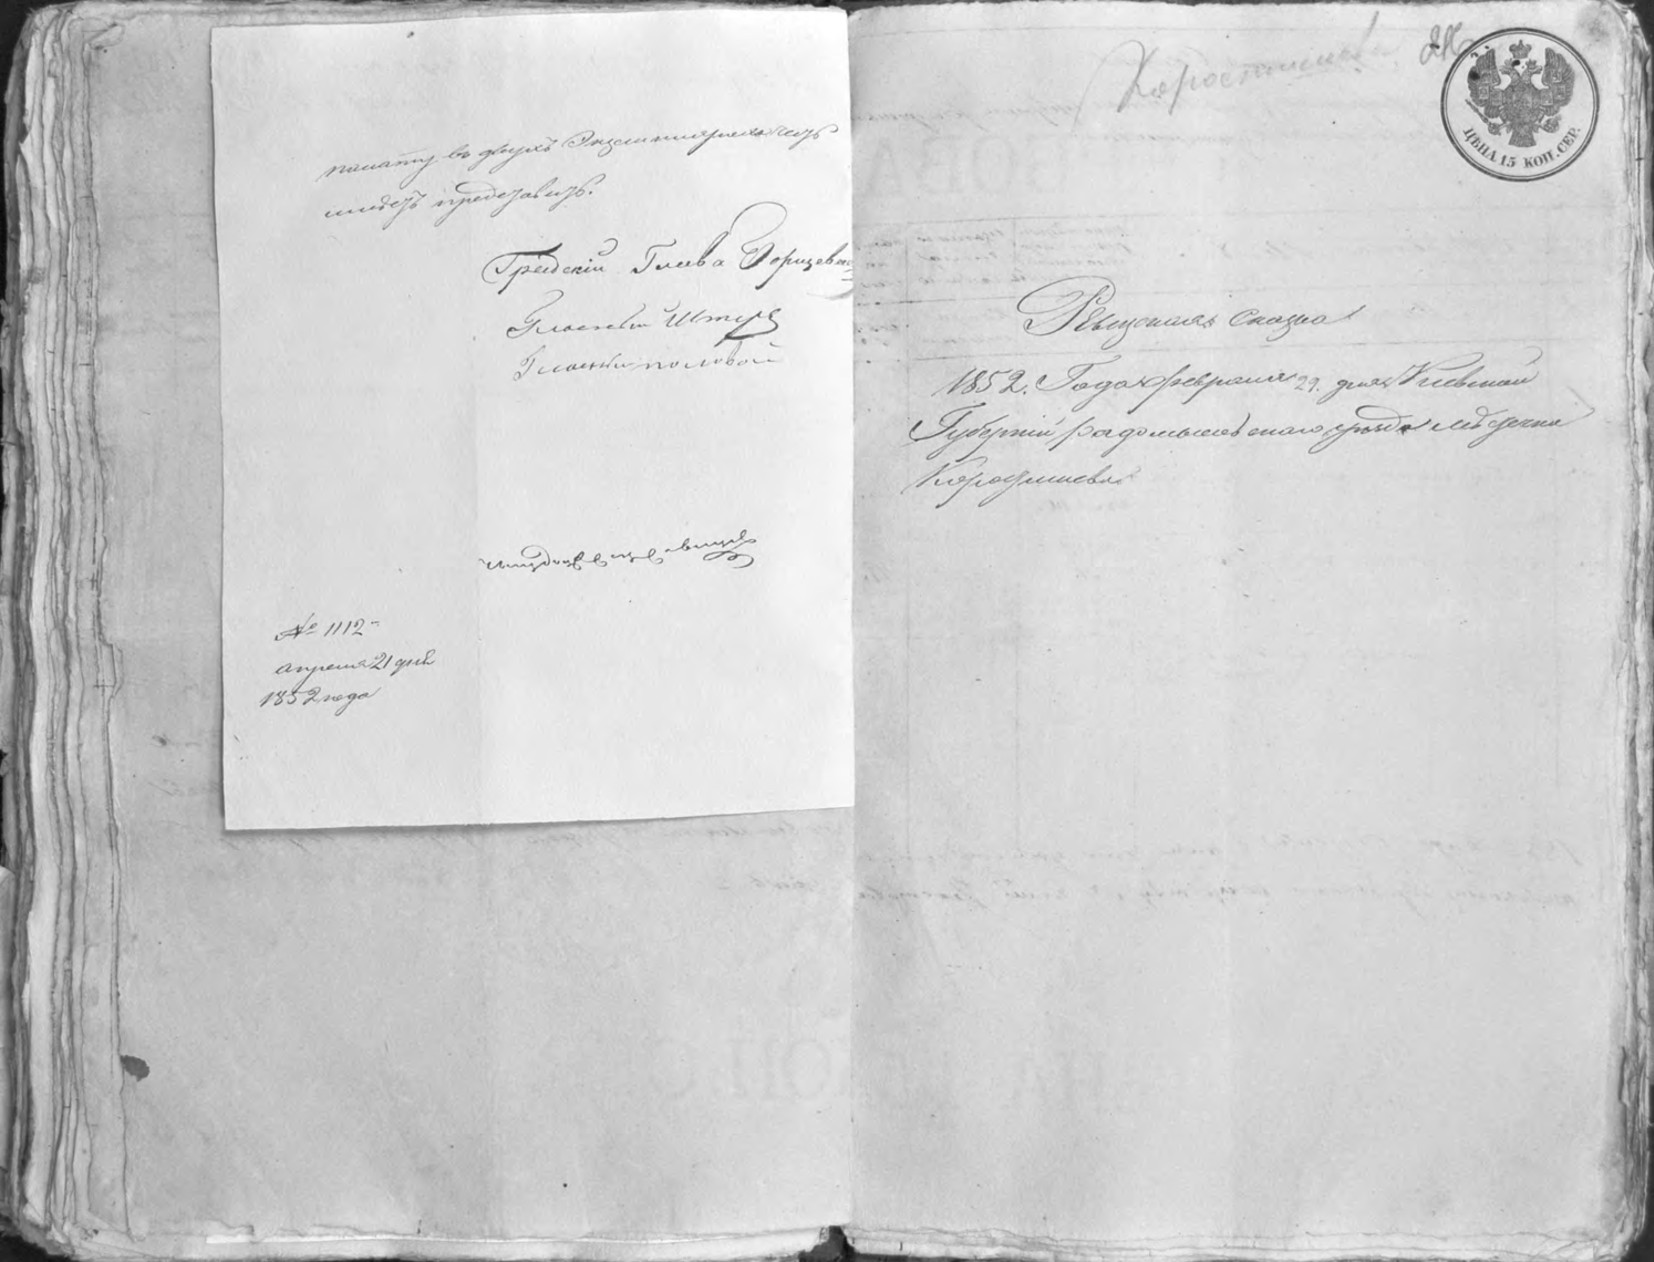 палату въ двухъ Экземплярахъ честь
имѣетъ представить.
Градскій Глава
Гласный Штерн
Гласный половой
№ 1112
апреля 21 дня
1852 года
Коростишевъ
ЦѢНА 15 КОП. СЕР.
Ревизская Сказка
1852. Года февраля 29. дня Киевской
Губерніи радомысльскаго уѣзда мѣстечка
Коростишева